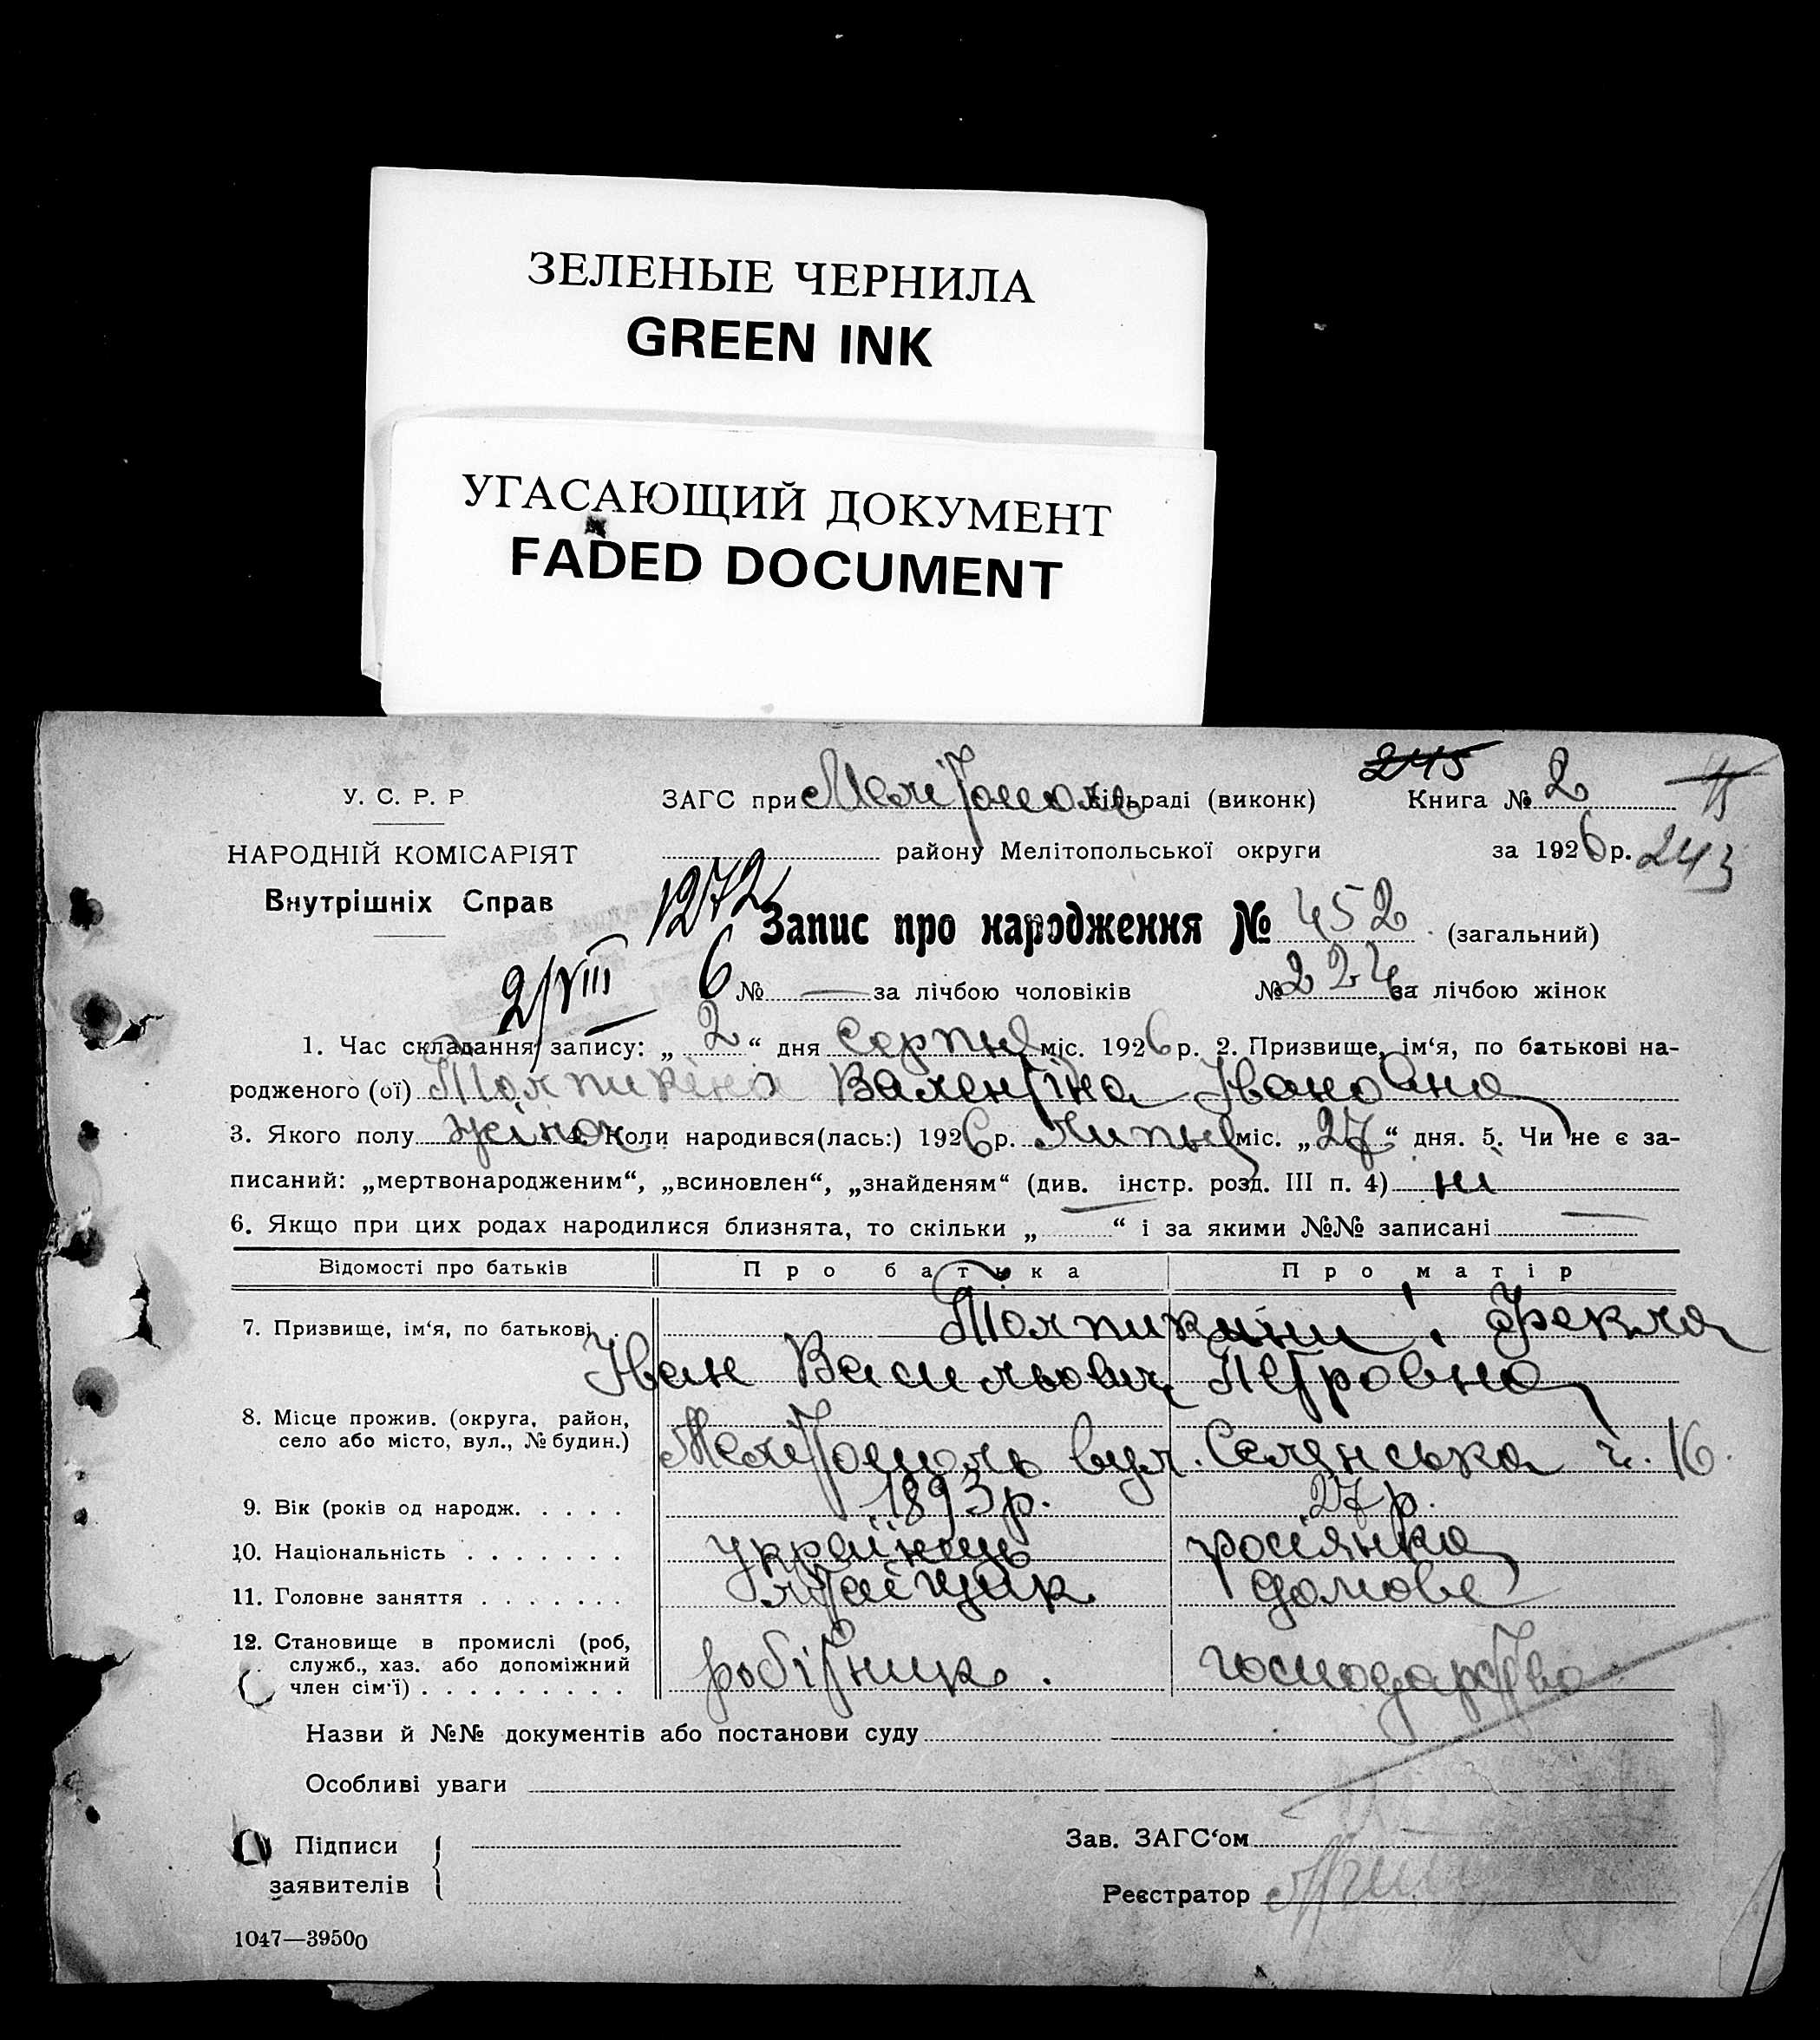 ЗЕЛЕНЫЕ ЧЕРНИЛА
GREEN INK
УГАСАЮЩИЙ ДОКУМЕНТ
FADED DOCUMENT
245
У. С. Р. Р. ЗАГС при Мелітополь сільраді (виконк) Книга № 2
НАРОДНІЙ КОМІСАРІЯТ району Мелітопольської округи за 1926 р. 243
Внутрішніх Справ
1272 Запис про народження № 452 (загальний)
2/VIII 6 № — за лічбою чоловіків № 224 за лічбою жінок
1. Час складання запису: „ 2 “ дня Серпня міс. 1926 р. 2. Призвище, ім‘я, по батькові на-
родженого (ої) Толпикіна Валентіна Івановна
3. Якого полу жіноч 4. Коли народився(лась:) 1926 р. Липня міс. „27“ дня. 5. Чи не є за-
писаний: „мертвонародженим“, „всиновлен“, „знайденям“ (див. інстр. розд. III п. 4) ні
6. Якщо при цих родах народилися близнята, то скільки „ — “ і за якими №№ записані —
Відомості про батьків Про батька Про матір
7. Призвище, ім‘я, по батькові Толпикини : Фекла
Іван Васильович Петровна
8. Місце прожив. (округа, район,
село або місто, вул., № будин.) Мелітополь вул. Селянська ч. 16.
9. Вік (років од народж. . . . . 1893 р. 27 р.
10. Національність . . . . . . . українець росіянка
11. Головне заняття . . . . . . . домове
12. Становище в промислі (роб,
служб., хаз. або допоміжний робітник. господарство
член сім‘ї) . . . . . . . . .
Назви й №№ документів або постанови суду
Особливі уваги
Підписи Зав. ЗАГС‘ом
заявителів Реєстратор
1047—39500